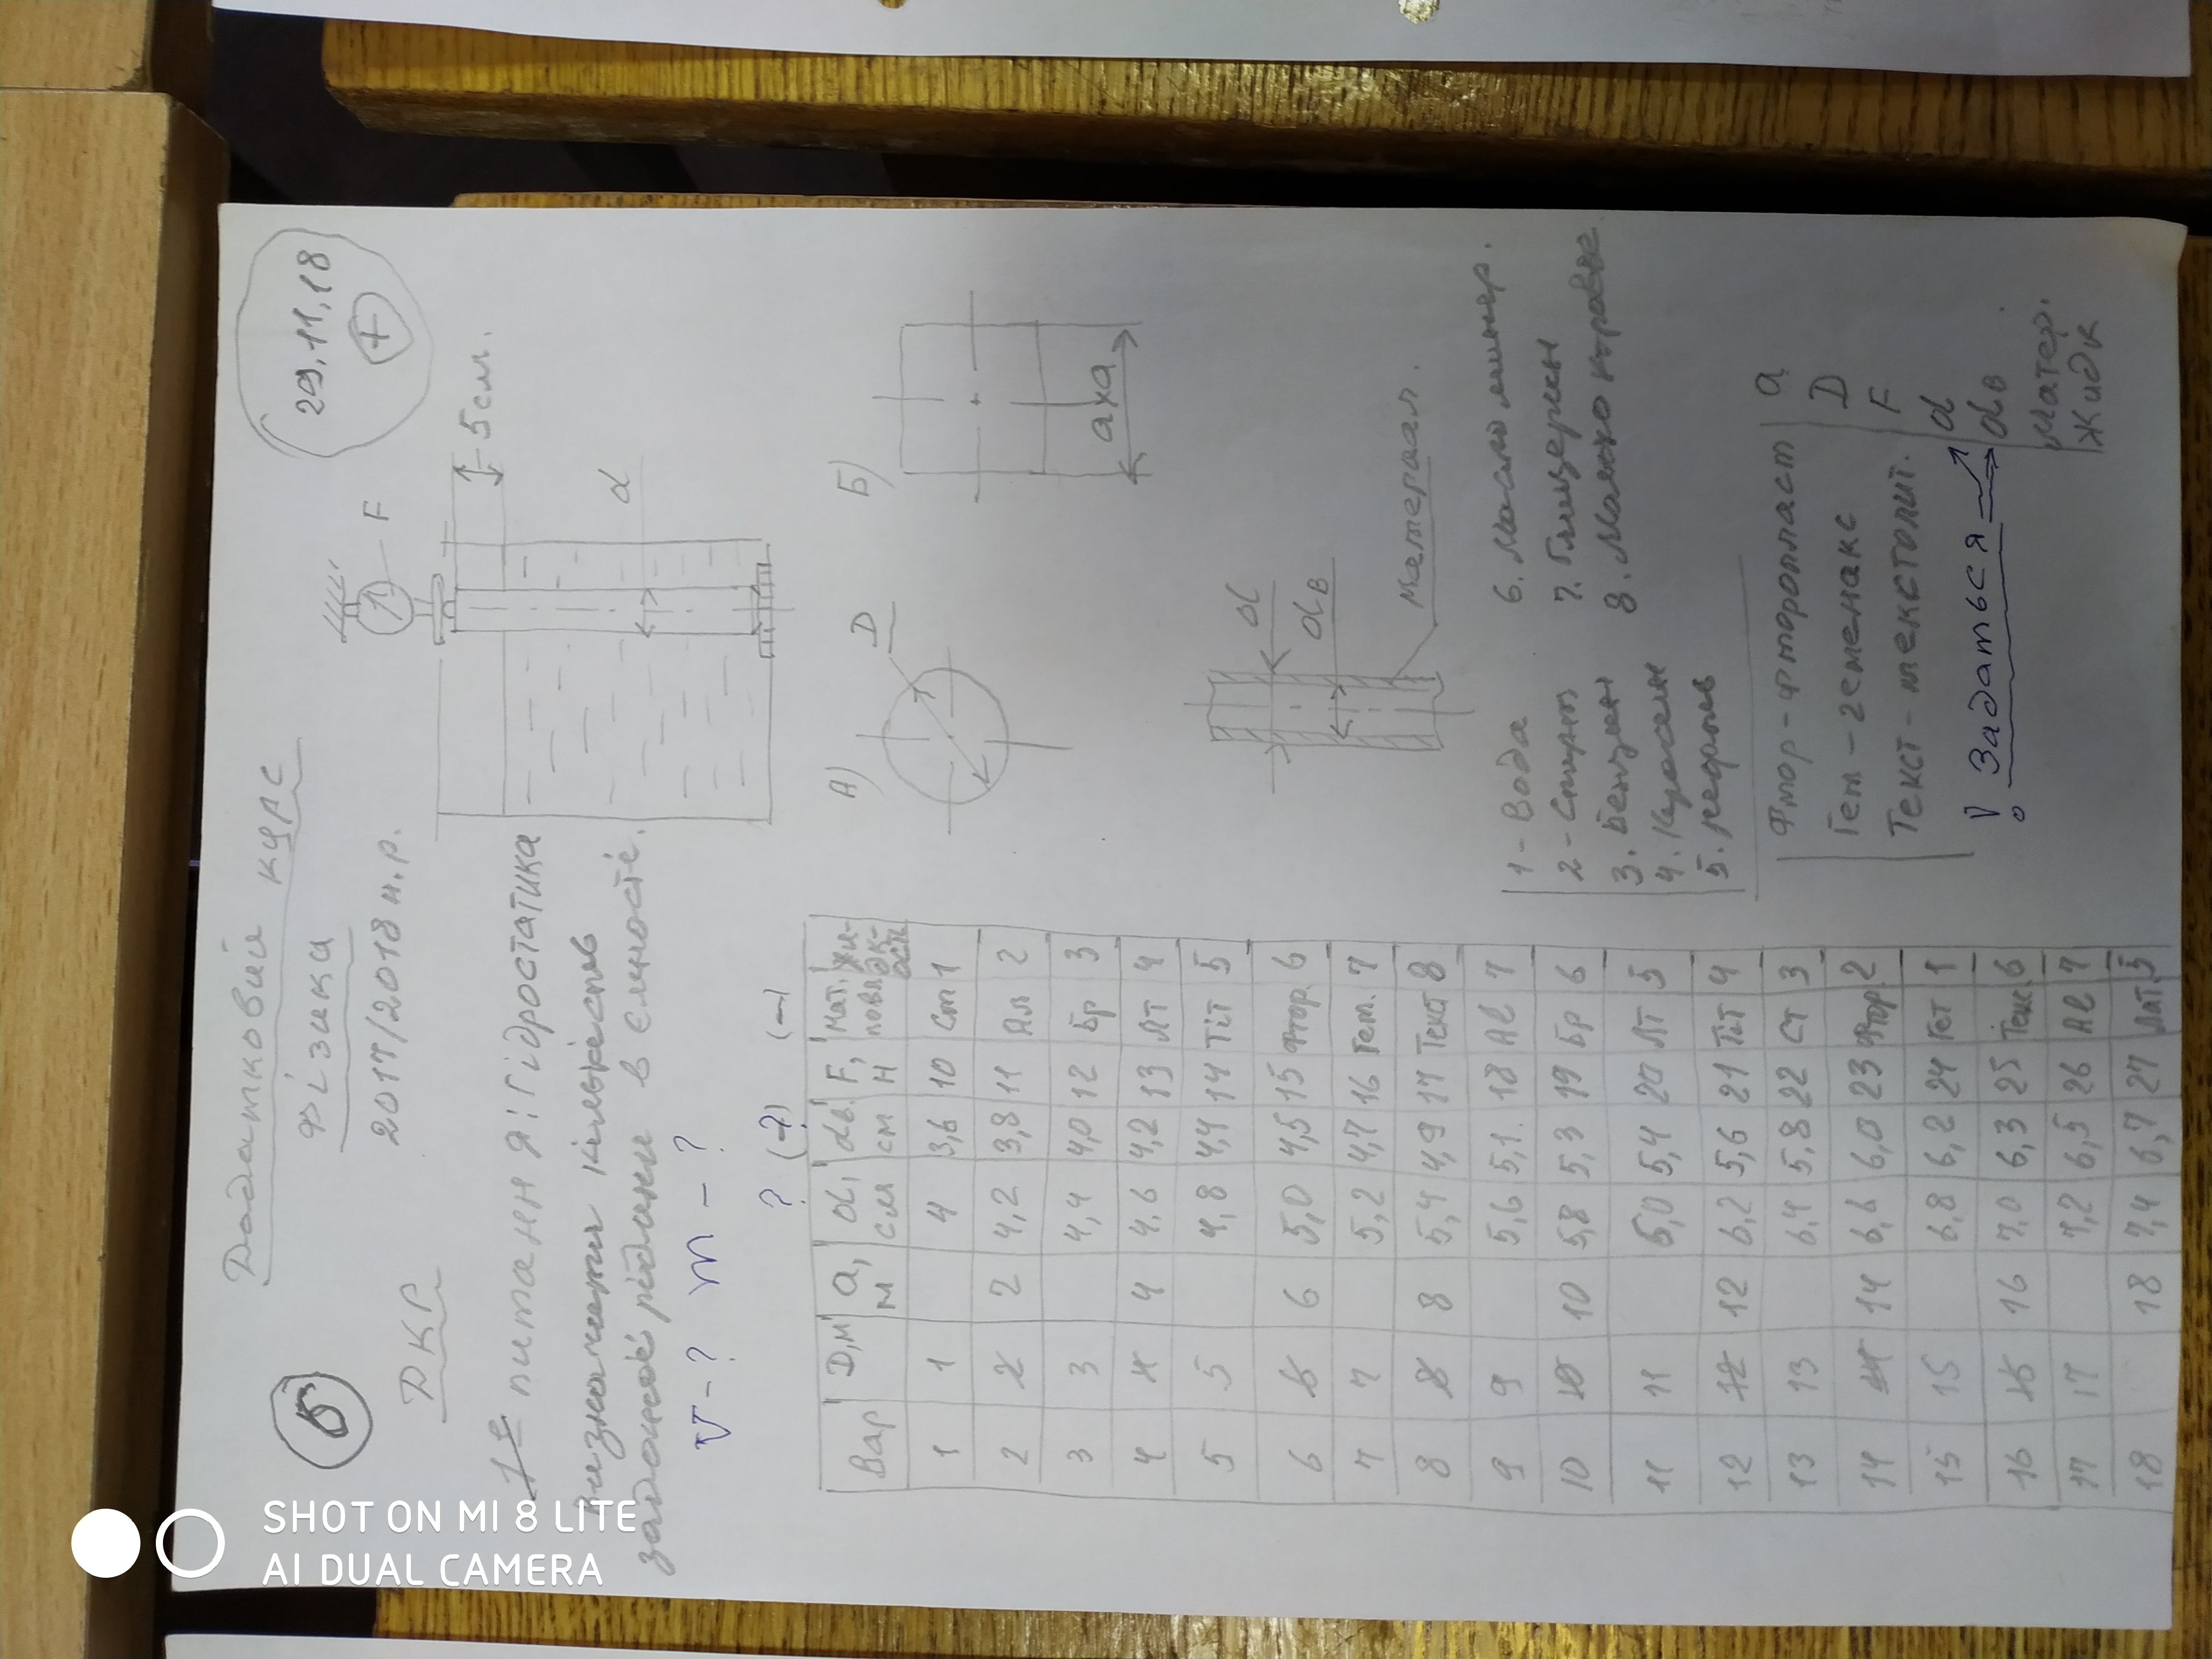 Додатковий курс
Фізика
2017/2018 н.р.
29.11.18
+
6
ДКР
1е питання: Гідростатика
Визначити кількість
заданої рідини в ємності.
V - ? m - ?
F
5 см.
d
А)
D
Б)
a x a
d
dв
Материал.
? (-?) (-)
Вар D,м a, м d, см dв, см F, Н Мат. повл. Жидкость
1 1 4 3,6 10 Ст 1
2 2 2 4,2 3,8 11 Ал 2
3 3 4,4 4,0 12 Бр 3
4 4 4 4,6 4,2 13 Лт 4
5 5 4,8 4,4 14 Тіт 5
6 6 6 5,0 4,5 15 Фтор. 6
7 7 5,2 4,7 16 Гет. 7
8 8 8 5,4 4,9 17 Текст 8
9 9 5,6 5,1. 18 Al 7
10 10 10 5,8 5,3 19 Бр 6
11 11 6,0 5,4 20 Лт 5
12 12 12 6,2 5,6 21 Тіт 4
13 13 6,4 5,8 22 Ст 3
14 14 14 6,6 6,0 23 Фтор. 2
15 15 6,8 6,2 24 Гет 1
16 16 16 7,0 6,3 25 Текс. 6
17 17 7,2 6,5 26 Al 7
18 18 7,4 6,7 27 Лат. 5
1 - Вода
2 - Спирт
3. Бензин
4. Керосин
5. нефть
6. Масло минер.
7. Глицерин
8. Молоко коровье
Фтор - фторопласт
Гет - гетинакс
Текст - текстолит.
! Задаться
a
D
F
d
dв
Матер.
Жидк
SHOT ON MI 8 LITE
AI DUAL CAMERA